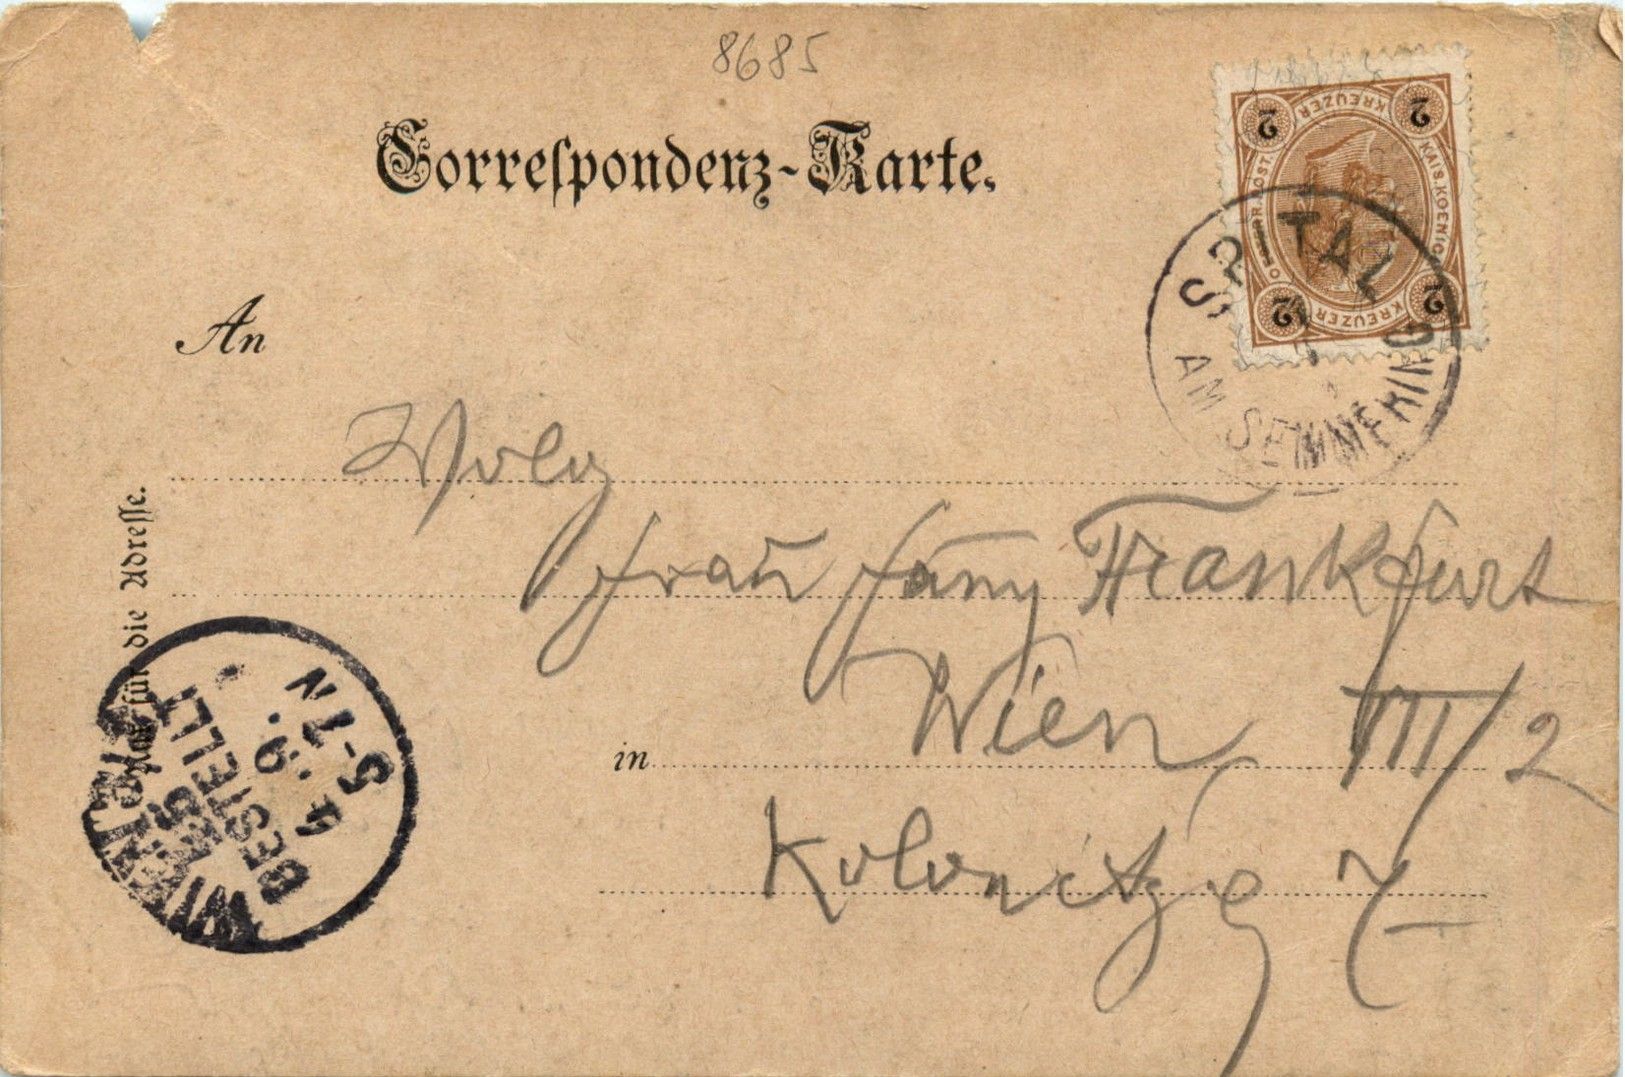 8685
Correspondenz-Karte.
2 KREUZER 2
KAIS. KOENIG.
2 KREUZER 2
SPITAL
AM SEMMERING
An
Wolg
Frau Fany Frankfurt
in Wien VIII/2
Kolonitzg 7
Nur für die Adresse.
WIEN
BESTELLT
4. 9.
5-7N